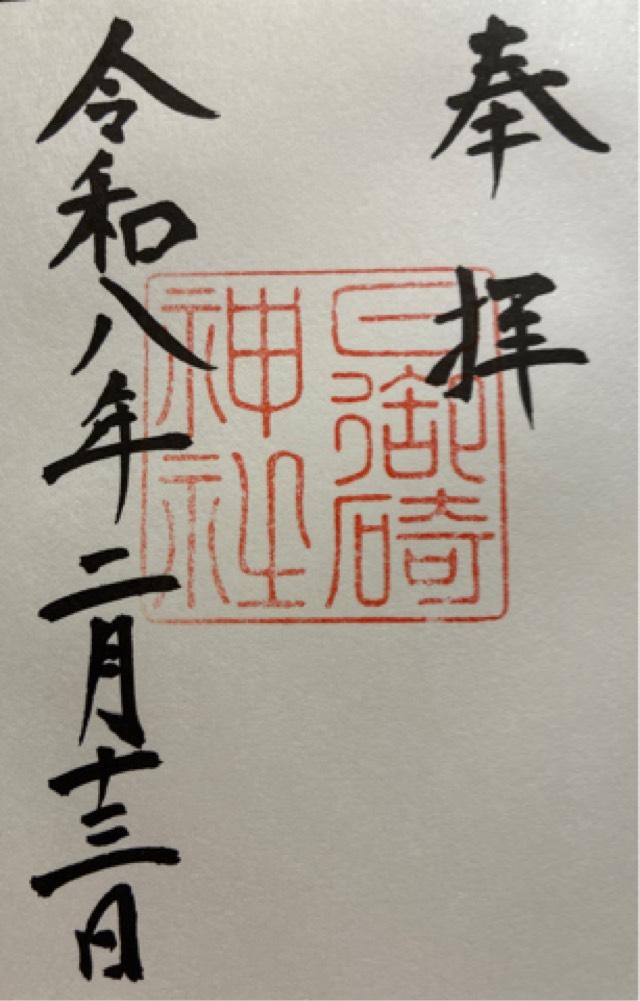 奉拝
日御碕
神社
令和八年二月十三日